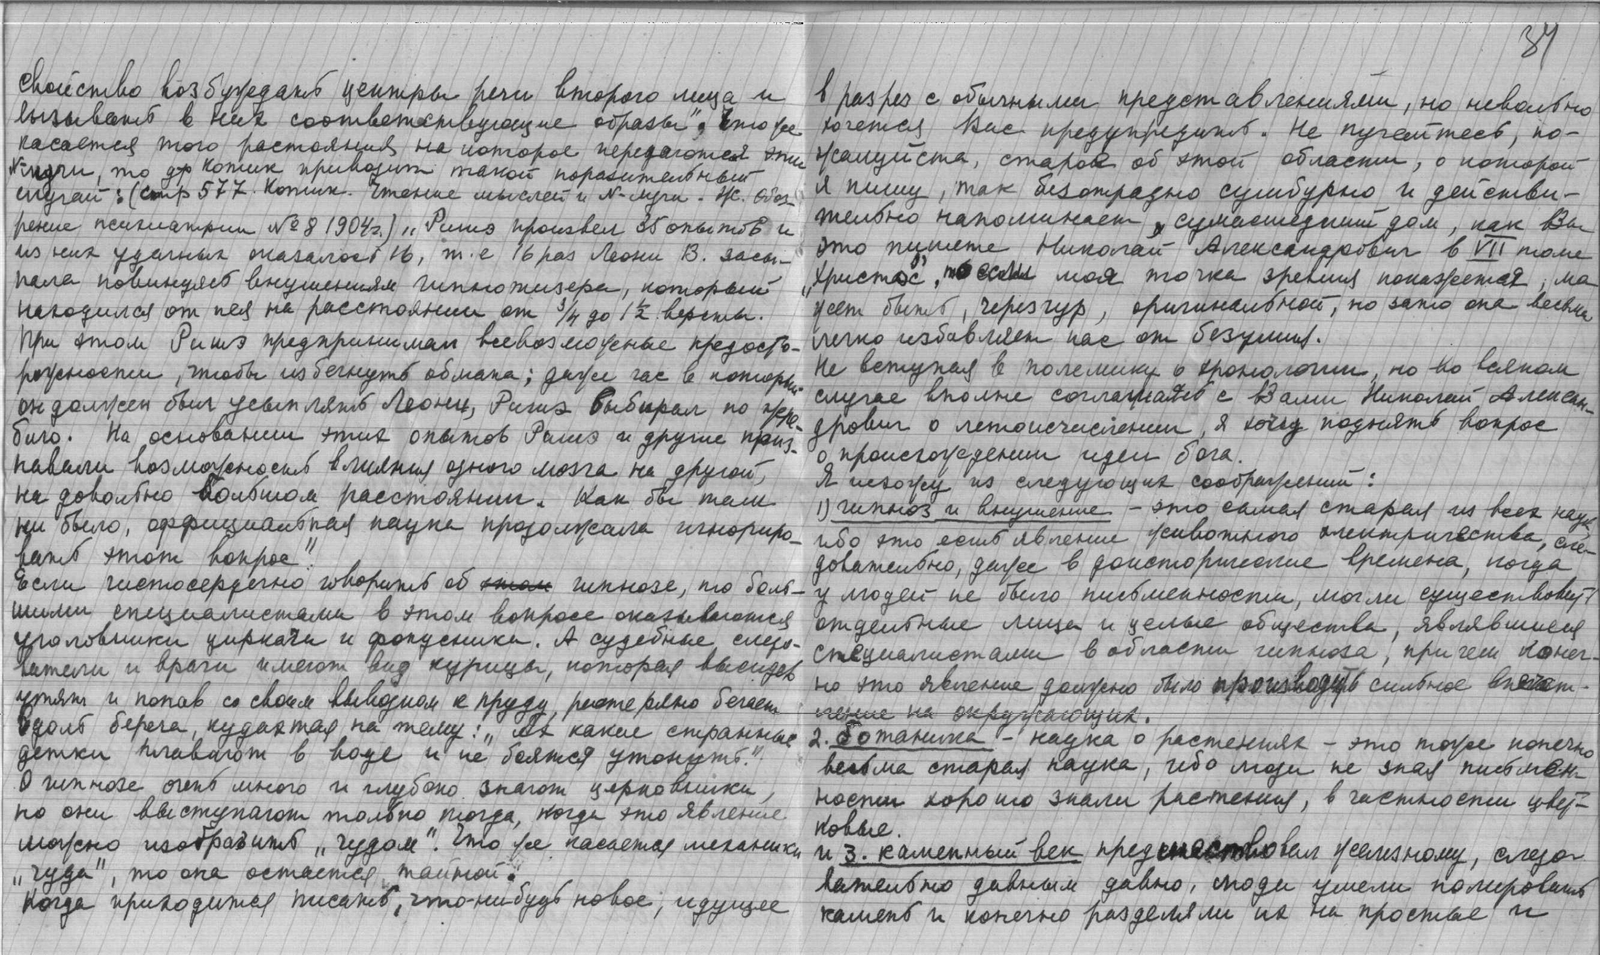 свойство возбуждать центры речи второго лица и
вызывать в них соответствующие образы". Что же
касается того растояния на которое передаются эти
N-лучи, то др Котик приводит такой поразительный
случай: (стр 577 Котик. Чтение мыслей и N-лучи. Ж. Обоз-
рение психиатрии № 8 1904г.) „Ришэ произвел 35 опытов и
из них удачных оказалось 16, т.е 16 раз Леони В. засы-
пала повинуясь внушениям гипнотизера, который
находился от нея на расстоянии от 3/4 до 1 1/2 версты.
При этом Ришэ предпринимал всевозможные предосто-
рожности, чтобы избегнуть обмана; даже час в который
он должен был усыплять Леони, Ришэ выбирал по жре-
бию. На основании этих опытов Ришэ и другие приз-
навали возможность влияния одного мозга на другой,
на довольно большом расстоянии. Как бы там
ни было, оффициальная наука продолжала игнориро-
вать этот вопрос"!
Если чистосердечно говорить об этом гипнозе, то боль-
шими специалистами в этом вопросе оказываются
уголовники циркачи и фокусники. А судебные следо-
ватели и врачи имеют вид курицы, которая высидев
утят и попав со своим выводком к пруду, растеряно бегает
вдоль берега, кудахтая на тему: „Ах какие странные
детки плавают в воде и не боятся утонуть."
О гипнозе очень много и глубоко знают церковники,
но они выступают только тогда, когда это явление
можно изобразить „чудом". Что же касается механики
„чуда", то она остается тайной.
Когда приходится писать, что-нибудь новое, идущее
34
в разрез с обычными представлениями, но невольно
хочется Вас предупредить. Не пугайтесь, по-
жалуйста, старое об этой области, о которой
я пишу, так безотрадно сумбурно и действи-
тельно напоминает „сумасшедший дом, как Вы
это пишете Николай Александрович в VII томе
„Христос", моя точка зрения покажется, мо
жет быть, черезчур, оригинальной, но зато она весьма
легко избавляет нас от безумия.
Не вступая в полемику о хронологии, но во всяком
случае вполне соглашаясь с Вами Николай Алексан-
дрович о летоисчислении, я хочу поднять вопрос
о происхождении идеи бога.
Я исхожу из следующих соображений:
1) гипноз и внушение – это самая старая из всех наук
ибо это есть явление животного электричества, сле-
довательно, даже в доисторические времена, когда
у людей не было письменности, могли существовать
отдельные лица и целые общества, являвшиеся
специалистами в области гипноза, при чем конеч-
но это явление должно было производить сильное впечат-
ление на окружающих.
2. Ботаника – наука о растениях – это тоже конечно
весьма старая наука, ибо люди не зная письмен-
ности хорошо знали растения, в частности цвет-
ковые.
и 3. каменный век предшествовал железному, следо-
вательно давным давно, люди умели полировать
камень и конечно разделяли их на простые и